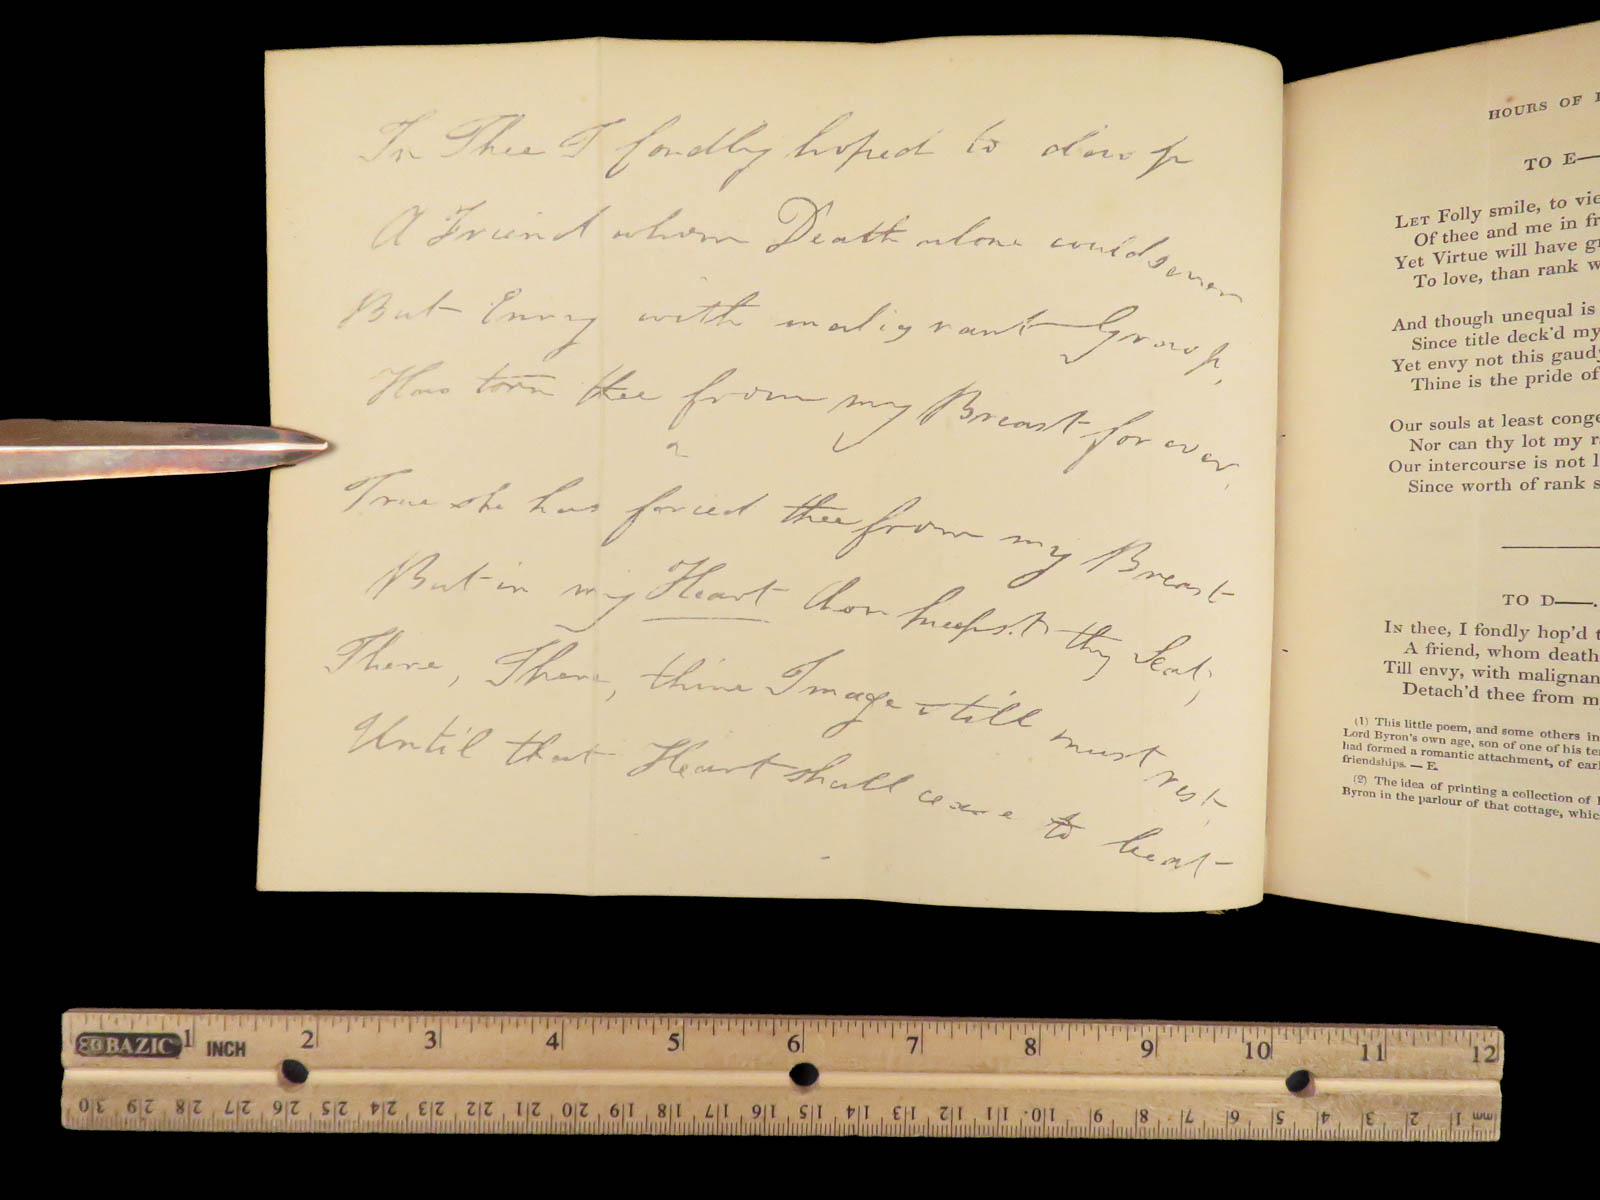 In Thee I fondly hoped to clasp
A Friend whom Death alone could sever
But Envy with malignant Grasp,
Has torn thee from my Breast for ever.
2
True she has forced thee from my Breast
But in my Heart thou keepst thy Seat;
There, There, thine Image still must rest,
Until that Heart shall cease to beat
HOURS OF
TO E——
LET Folly smile, to
Of thee and me in
Yet Virtue will have
To love, than rank
And though unequal is
Since title deck'd my
Yet envy not this
Thine is the pride of
Our souls at least
Nor can thy lot my
Our intercourse is not
Since worth of rank
TO D——.
IN thee, I fondly hop'd
A friend, whom death
Till envy, with
Detach'd thee from
(1) This little poem, and some others in
Lord Byron's own age, son of one of his
had formed a romantic attachment, of
friendships. — E.
(2) The idea of printing a collection of
Byron in the parlour of that cottage,
BAZIC 1 INCH 2 3 4 5 6 7 8 9 10 11 12
30 29 28 27 26 25 24 23 22 21 20 19 18 17 16 15 14 13 12 11 10 9 8 7 6 5 4 3 2 1 mm